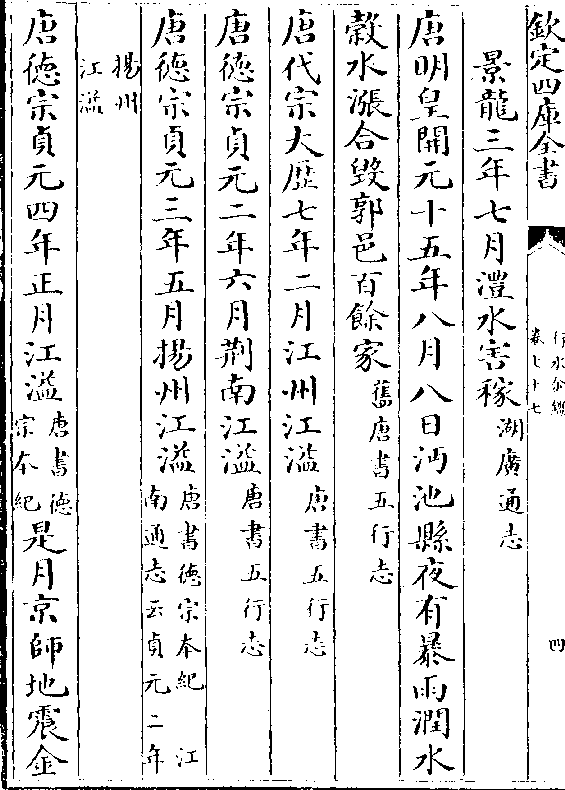 欽定四庫全書
行水金鑑
卷七十七
四
景龍三年七月澧水害稼湖廣通志
唐明皇開元十五年八月八日沔池縣夜有暴雨澗水
穀水漲合毀郭邑百餘家舊唐書五行志
唐代宗大歷七年二月江州江溢唐書五行志
唐德宗貞元二年六月荆南江溢唐書五行志
唐德宗貞元三年五月揚州江溢唐書德宗本紀 江南通志云貞元二年
揚州江溢
唐德宗貞元四年正月江溢唐書德宗本紀是月京師地震金